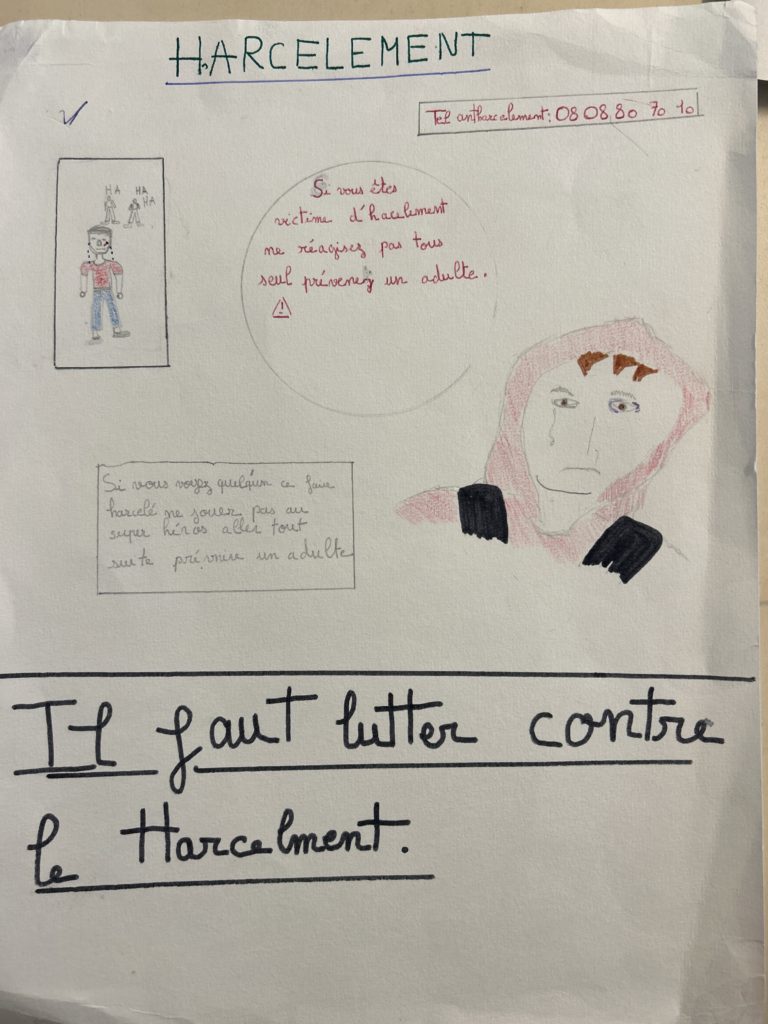 HARCELEMENT
Tel antiharcelement: 08 08 80 70 10
HA HA
HA
Si vous êtes
victime d'hacelement
ne réagisez pas tous
seul prévenez un adulte.
!
Si vous voyez quelq'un ce faire
harcelé ne jouer pas au
super héros aller tout
suite prévnire un adulte
Il faut lutter contre
le Harcelment.